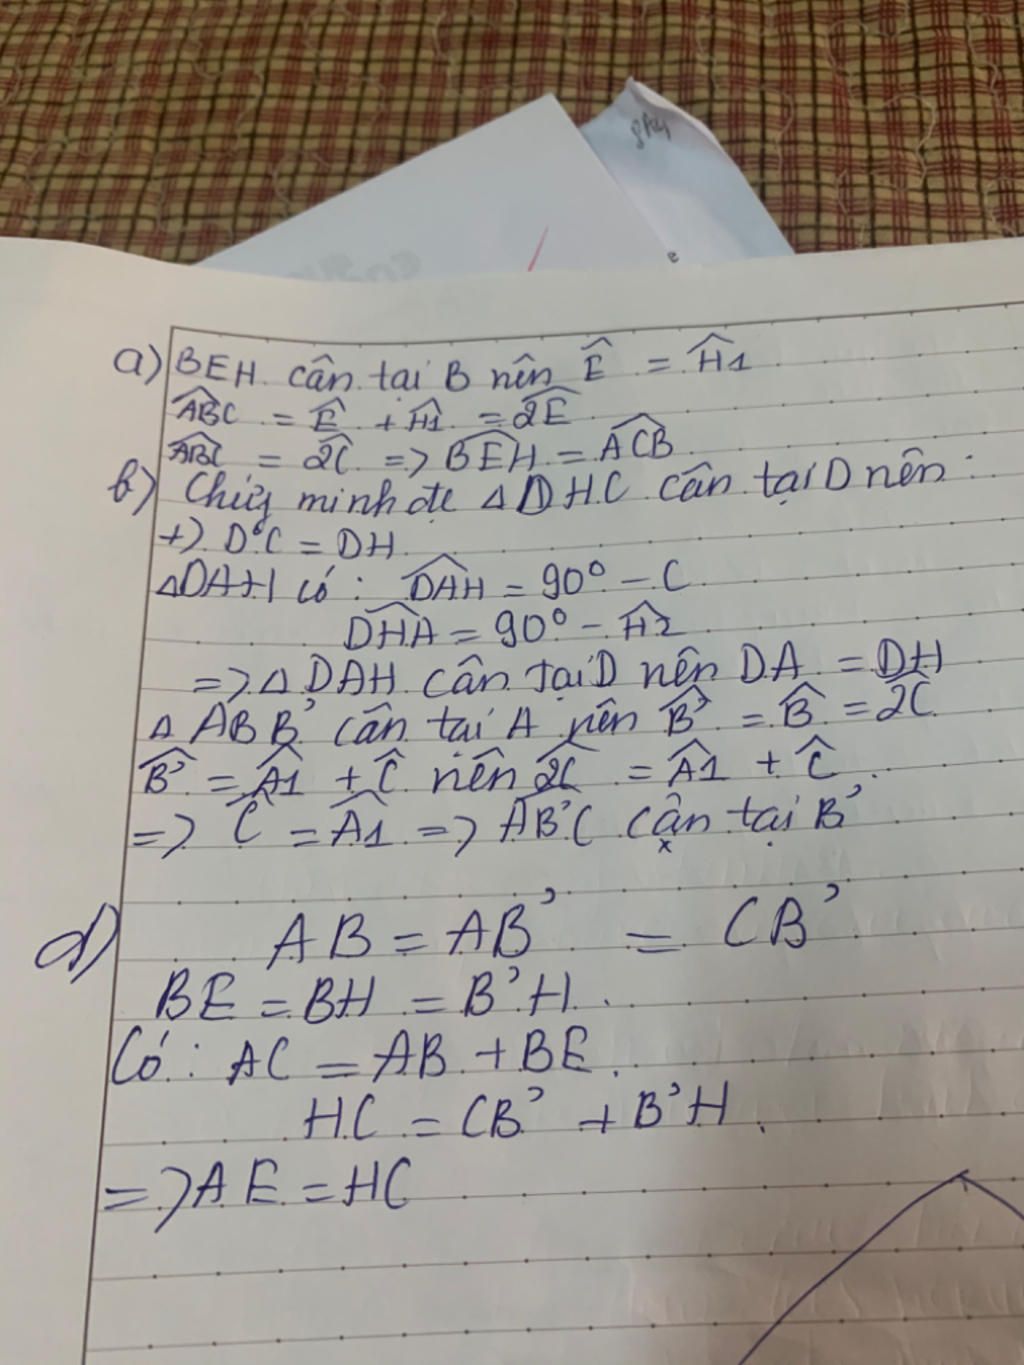 a) BEH cân tại B nên Ê = Ĥ1
\widehat{ABC} = Ê + Ĥ1 = \widehat{2E}
\widehat{ABC} = \widehat{2C} => \widehat{BEH} = \widehat{ACB}
b) Chứg minh đc △DHC cân tại D nên:
+) DC = DH
△DAH có: \widehat{DAH} = 90° - C
\widehat{DHA} = 90° - Ĥ2
=> △DAH cân tại D nên DA = DH
△ABB' cân tại A nên \widehat{B'} = \widehat{B} = \widehat{2C}
\widehat{B'} = \widehat{A1} + Ĉ nên \widehat{2C} = \widehat{A1} + Ĉ
=> Ĉ = \widehat{A1} => \widehat{AB'C} cân tại B'
d) AB = AB' = CB'
BE = BH = B'H
Có: AC = AB + BE
HC = CB' + B'H
=> AE = HC